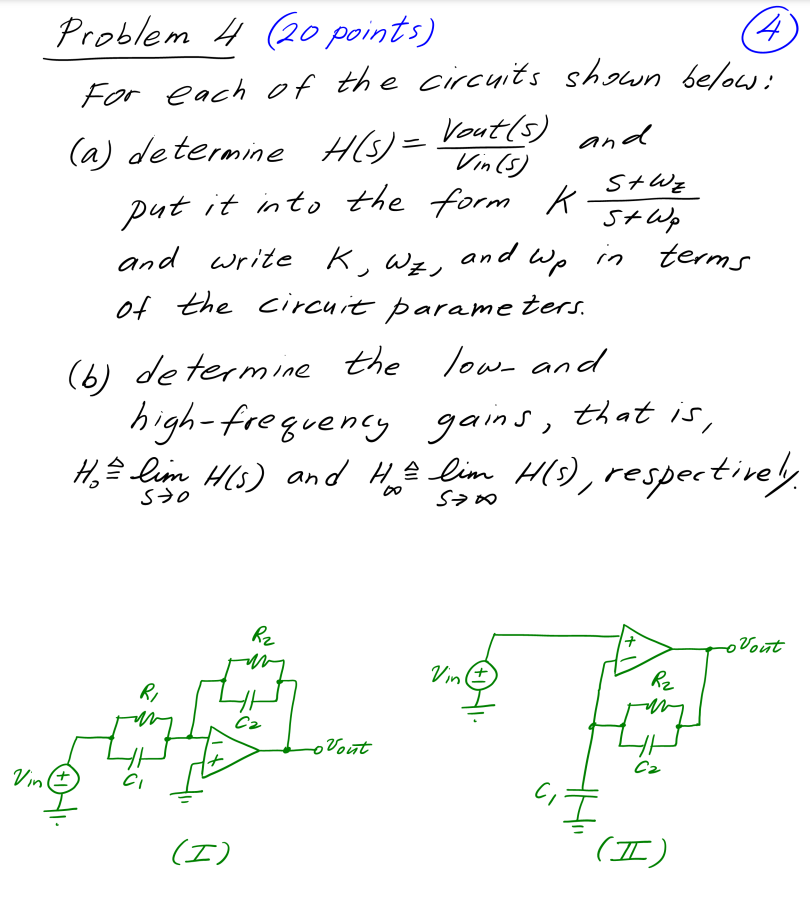 Problem 4 (20 points) 4
For each of the circuits shown below:
(a) determine H(s) = Vout(s)/Vin(s) and
put it into the form K (s+ωz)/(s+ωp)
and write K, ωz, and ωp in terms
of the circuit parameters.
(b) determine the low- and
high-frequency gains, that is,
H₀ ≜ lim s→0 H(s) and H∞ ≜ lim s→∞ H(s), respectively.
R₂
R₁
C₂
C₁
Vin
+
-
+
Vout
(I)
Vin
+
+
-
Vout
R₂
C₂
C₁
(II)